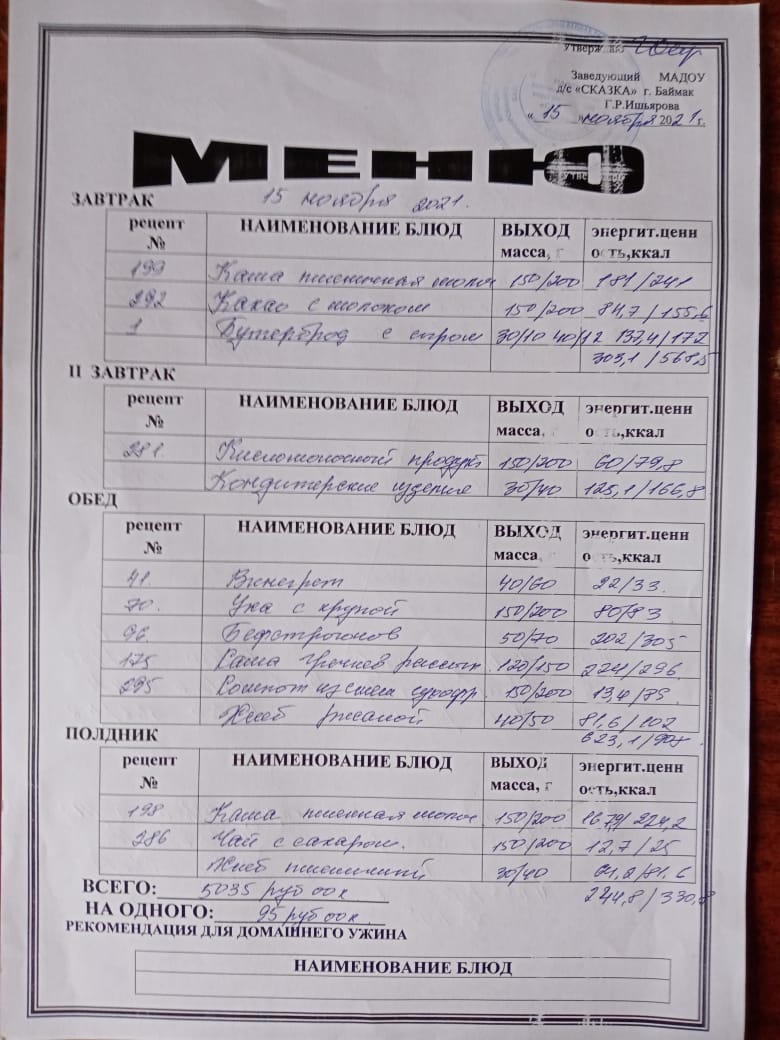 Заведующий МАДОУ
д/с «СКАЗКА» г. Баймак
Г.Р.Ишьярова
«15» ноября 2021 г.
МЕНЮ
15 ноября 2021.
ЗАВТРАК
рецепт № НАИМЕНОВАНИЕ БЛЮД ВЫХОД масса, г энергит.ценн ость,ккал
199 Каша пшеничная молоч 150/200 181/241
292 Какао с молоком 150/200 84,7/155,6
1 Бутерброд с сыром 30/10 40/12 137,4/172
303,1/568,5
II ЗАВТРАК
рецепт № НАИМЕНОВАНИЕ БЛЮД ВЫХОД масса, г энергит.ценн ость,ккал
281 Кисломолочный продукт 150/200 60/79,8
Кондитерские изделия 30/40 125,1/166,8
ОБЕД
рецепт № НАИМЕНОВАНИЕ БЛЮД ВЫХОД масса, г энергит.ценн ость,ккал
41. Винегрет 40/60 22/33.
70. Уха с крупой 150/200 80/83
96. Бефстроганов 50/70 202/305
175 Каша гречнев рассып 120/150 224/296
295 Компот из смеси сухофр. 150/200 13,4/89
Хлеб ржаной 40/50 81,6/102
623,1/908.
ПОЛДНИК
рецепт № НАИМЕНОВАНИЕ БЛЮД ВЫХОД масса, г энергит.ценн ость,ккал
198 Каша пшенная молоч 150/200 167,9/224,2
286 Чай с сахаром. 150/200 12,7/25
Хлеб пшеничный 30/40 /81,6
224,8/330,8
ВСЕГО: 5035 руб 00 к
НА ОДНОГО: 95 руб 00 к.
РЕКОМЕНДАЦИЯ ДЛЯ ДОМАШНЕГО УЖИНА
НАИМЕНОВАНИЕ БЛЮД